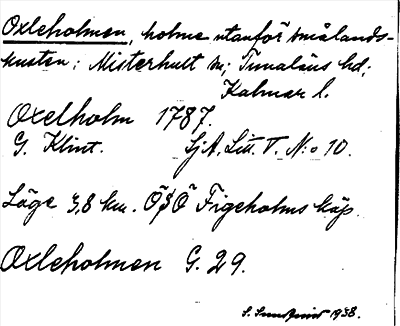 Oxleholmen, holme utanför Smålands-
kusten; Misterhult sn; Tunaläns hd;
Kalmar l.
Oxelholm 1787.
G. Klint. SjA, Litt. V. N:o 10.
Läge 3,8 km. ÖSÖ Figeholms kap.
Oxleholmen G. 29.
S. 1938.